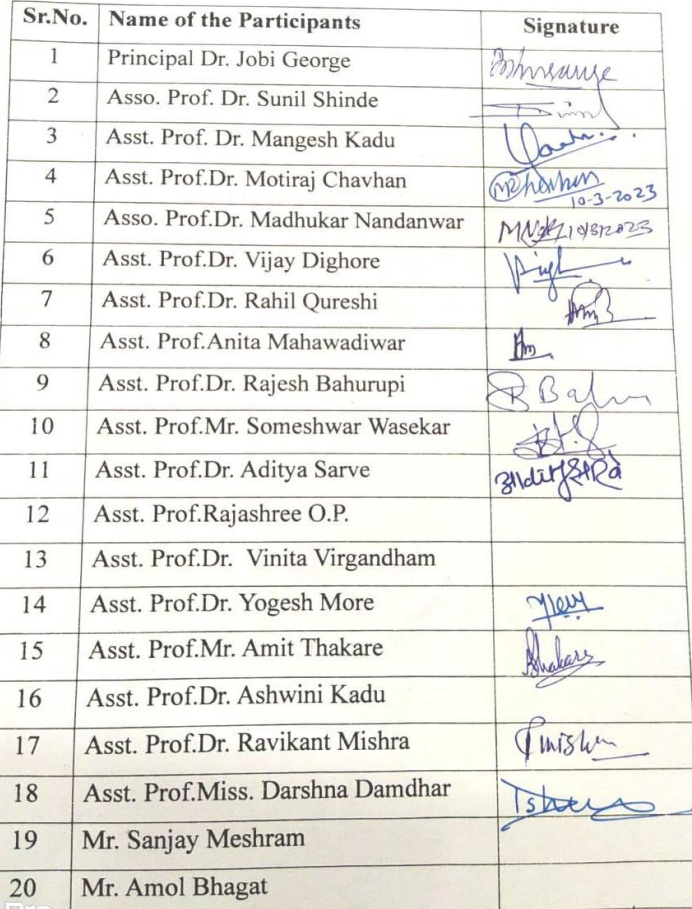 Sr.No. Name of the Participants Signature
1 Principal Dr. Jobi George
2 Asso. Prof. Dr. Sunil Shinde
3 Asst. Prof. Dr. Mangesh Kadu
4 Asst. Prof.Dr. Motiraj Chavhan
10-3-2023
5 Asso. Prof.Dr. Madhukar Nandanwar
6 Asst. Prof.Dr. Vijay Dighore
7 Asst. Prof.Dr. Rahil Qureshi
8 Asst. Prof.Anita Mahawadiwar
9 Asst. Prof.Dr. Rajesh Bahurupi
10 Asst. Prof.Mr. Someshwar Wasekar
11 Asst. Prof.Dr. Aditya Sarve
12 Asst. Prof.Rajashree O.P.
13 Asst. Prof.Dr. Vinita Virgandham
14 Asst. Prof.Dr. Yogesh More
15 Asst. Prof.Mr. Amit Thakare
16 Asst. Prof.Dr. Ashwini Kadu
17 Asst. Prof.Dr. Ravikant Mishra
18 Asst. Prof.Miss. Darshna Damdhar
19 Mr. Sanjay Meshram
20 Mr. Amol Bhagat